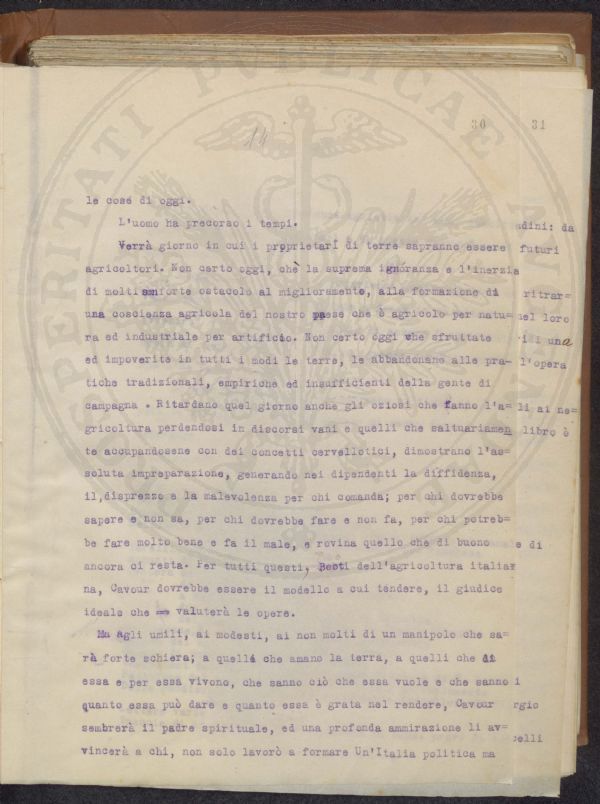 30 31
14
le cose di oggi.
L'uomo ha precorso i tempi.
Verrà giorno in cui i proprietari di terre sapranno essere
agricoltori. Non certo oggi, chè la suprema ignoranza e l'inerzia
di molti son forte ostacolo al miglioramento, alla formazione di
una coscienza agricola del nostro paese che è agricolo per natu=
ra ed industriale per artificio. Non certo oggi che sfruttate
ed impoverite in tutti i modi le terre, le abbandonano alle pra-
tiche tradizionali, empiriche ed insufficienti della gente di
campagna . Ritardano quel giorno anche gli oziosi che fanno l'a=
gricoltura perdendosi in discorsi vani e quelli che saltuariamen
te accupandosene con dei concetti cervellotici, dimostrano l'as=
soluta impreparazione, generando nei dipendenti la diffidenza,
il disprezzo e la malevolenza per chi comanda; per chi dovrebbe
sapere e non sa, per chi dovrebbe fare e non fa, per chi potreb=
be fare molto bene e fa il male, e rovina quello che di buono
ancora ci resta. Per tutti questi, Beoti dell'agricoltura italia=
na, Cavour dovrebbe essere il modello a cui tendere, il giudice
ideale che valuterà le opere.
Ma agli umili, ai modesti, ai non molti di un manipolo che sa=
rà forte schiera; a quelli che amano la terra, a quelli che di
essa e per essa vivono, che sanno ciò che essa vuole e che sanno
quanto essa può dare e quanto essa è grata nel rendere, Cavour
sembrerà il padre spirituale, ed una profonda ammirazione li av=
vincerà a chi, non solo lavorò a formare Un'Italia politica ma
adini: da
futuri
ritrar=
nel loro
una
l'opera
li ai ne=
libro è
e di
i
rgio
celli
PUBLICAE